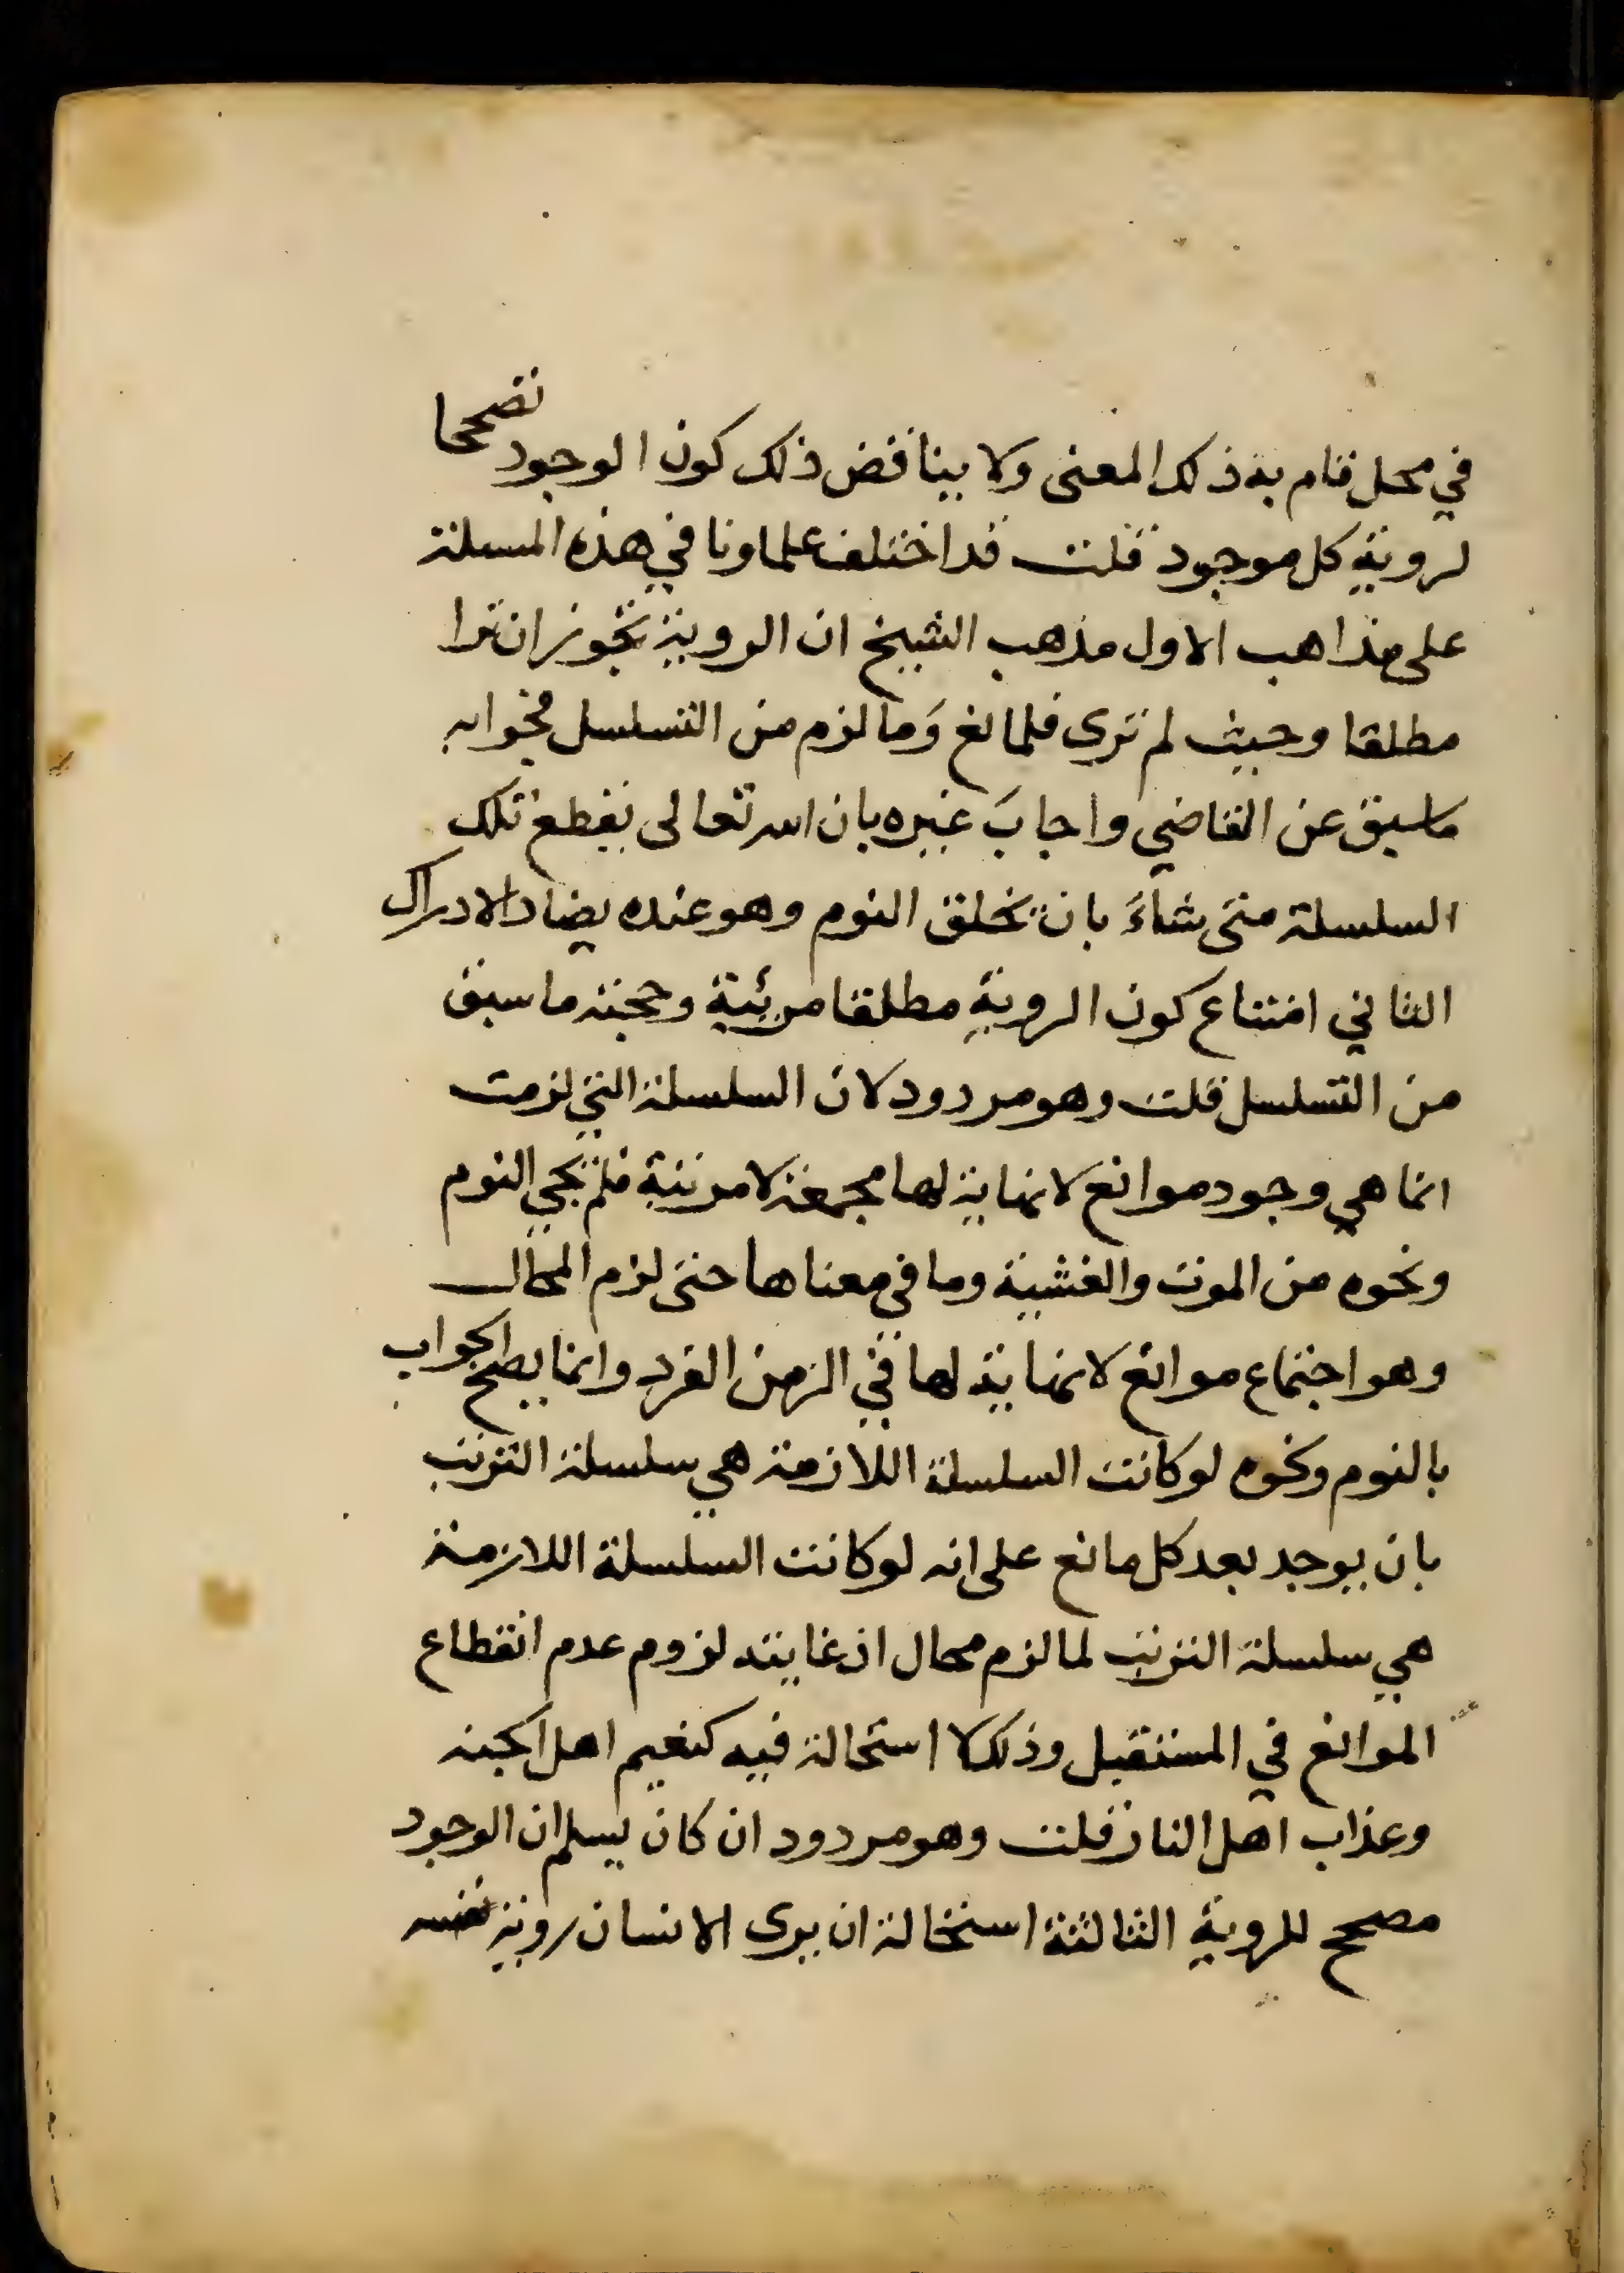 في محل قام به ذلك المعنى ولا يناقض ذلك كون الوجود تصححا
لروية كل موجود قلت قد اختلف علماونا في هذه المسلة
على مذاهب الاول مذهب الشيخ ان الروية تجوز ان ترا
مطلقا وحيث لم ترى فلمانع وَما لزم من التسلسل فجوابه
ما سبق عن القاضي واجابَ غيره بان الله تعالى يقطع تلك
السلسلة متى شاءَ بان يخلق النوم وهو عنده يضاد الادراك
الثاني امتناع كون الروية مطلقا مرئية وحجته ما سبق
من التسلسل قلت وهو مردود لان السلسلة التي لزمت
انما هي وجود موانع لا نهاية لها مجمعة لا مرتبة فلم يجي النوم
ونحوه من الموت والغشية وما في معناها حتى لزم المحال
وهو اجتماع موانع لا نهاية لها في الزمن الفرد وانما يصح الجواب
بالنوم ونحوه لو كانت السلسلة اللازمة هي سلسلة الترتب
بان يوجد بعد كل مانع على انه لو كانت السلسلة اللازمة
هي سلسلة الترتب لما لزم محال اذ غايته لزوم عدم انقطاع
الموانع في المستقبل وذلك لا استحالة فيه كنعيم اهل الجنة
وعذاب اهل النار قلت وهو مردود ان كان يسلم ان الوجود
مصحح للروية الثالثة استحالة ان يرى الانسان روية نفسه